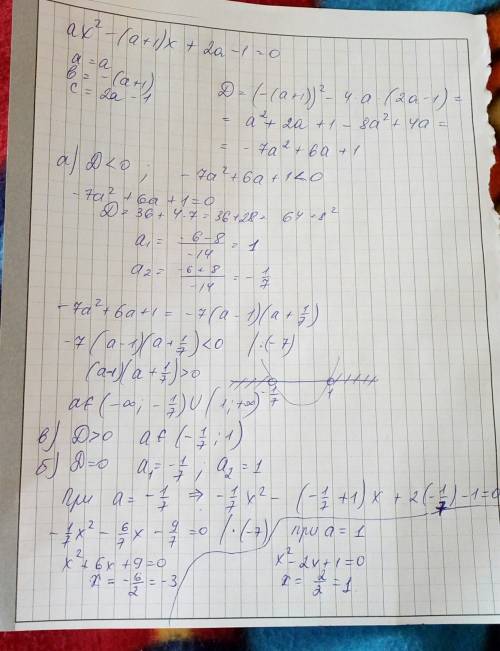 ax² - (a+1)x + 2a - 1 = 0
a = a
в = -(a+1)
c = 2a - 1
D = (-(a+1))² - 4·a·(2a-1) =
= a² + 2a + 1 - 8a² + 4a =
= -7a² + 6a + 1
a) D<0 ; -7a² + 6a + 1 < 0
-7a² + 6a + 1 = 0
D = 36 + 4·7 = 36 + 28 = 64 = 8²
a₁ = (-6-8)/(-14) = 1
a₂ = (-6+8)/(-14) = -1/7
-7a² + 6a + 1 = -7(a-1)(a + 1/7)
-7(a-1)(a + 1/7) < 0 | :(-7)
(a-1)(a + 1/7) > 0
-1/7 1
a ∈ (-∞; -1/7) ∪ (1; +∞)
в) D>0 a ∈ (-1/7; 1)
б) D=0 a₁ = -1/7, a₂ = 1
при a = -1/7 ⇒ -1/7 x² - (-1/7 + 1)x + 2(-1/7) - 1 = 0
-1/7 x² - 6/7 x - 9/7 = 0 | ·(-7)
x² + 6x + 9 = 0
x = -6/2 = -3
при a = 1
x² - 2x + 1 = 0
x = 2/2 = 1